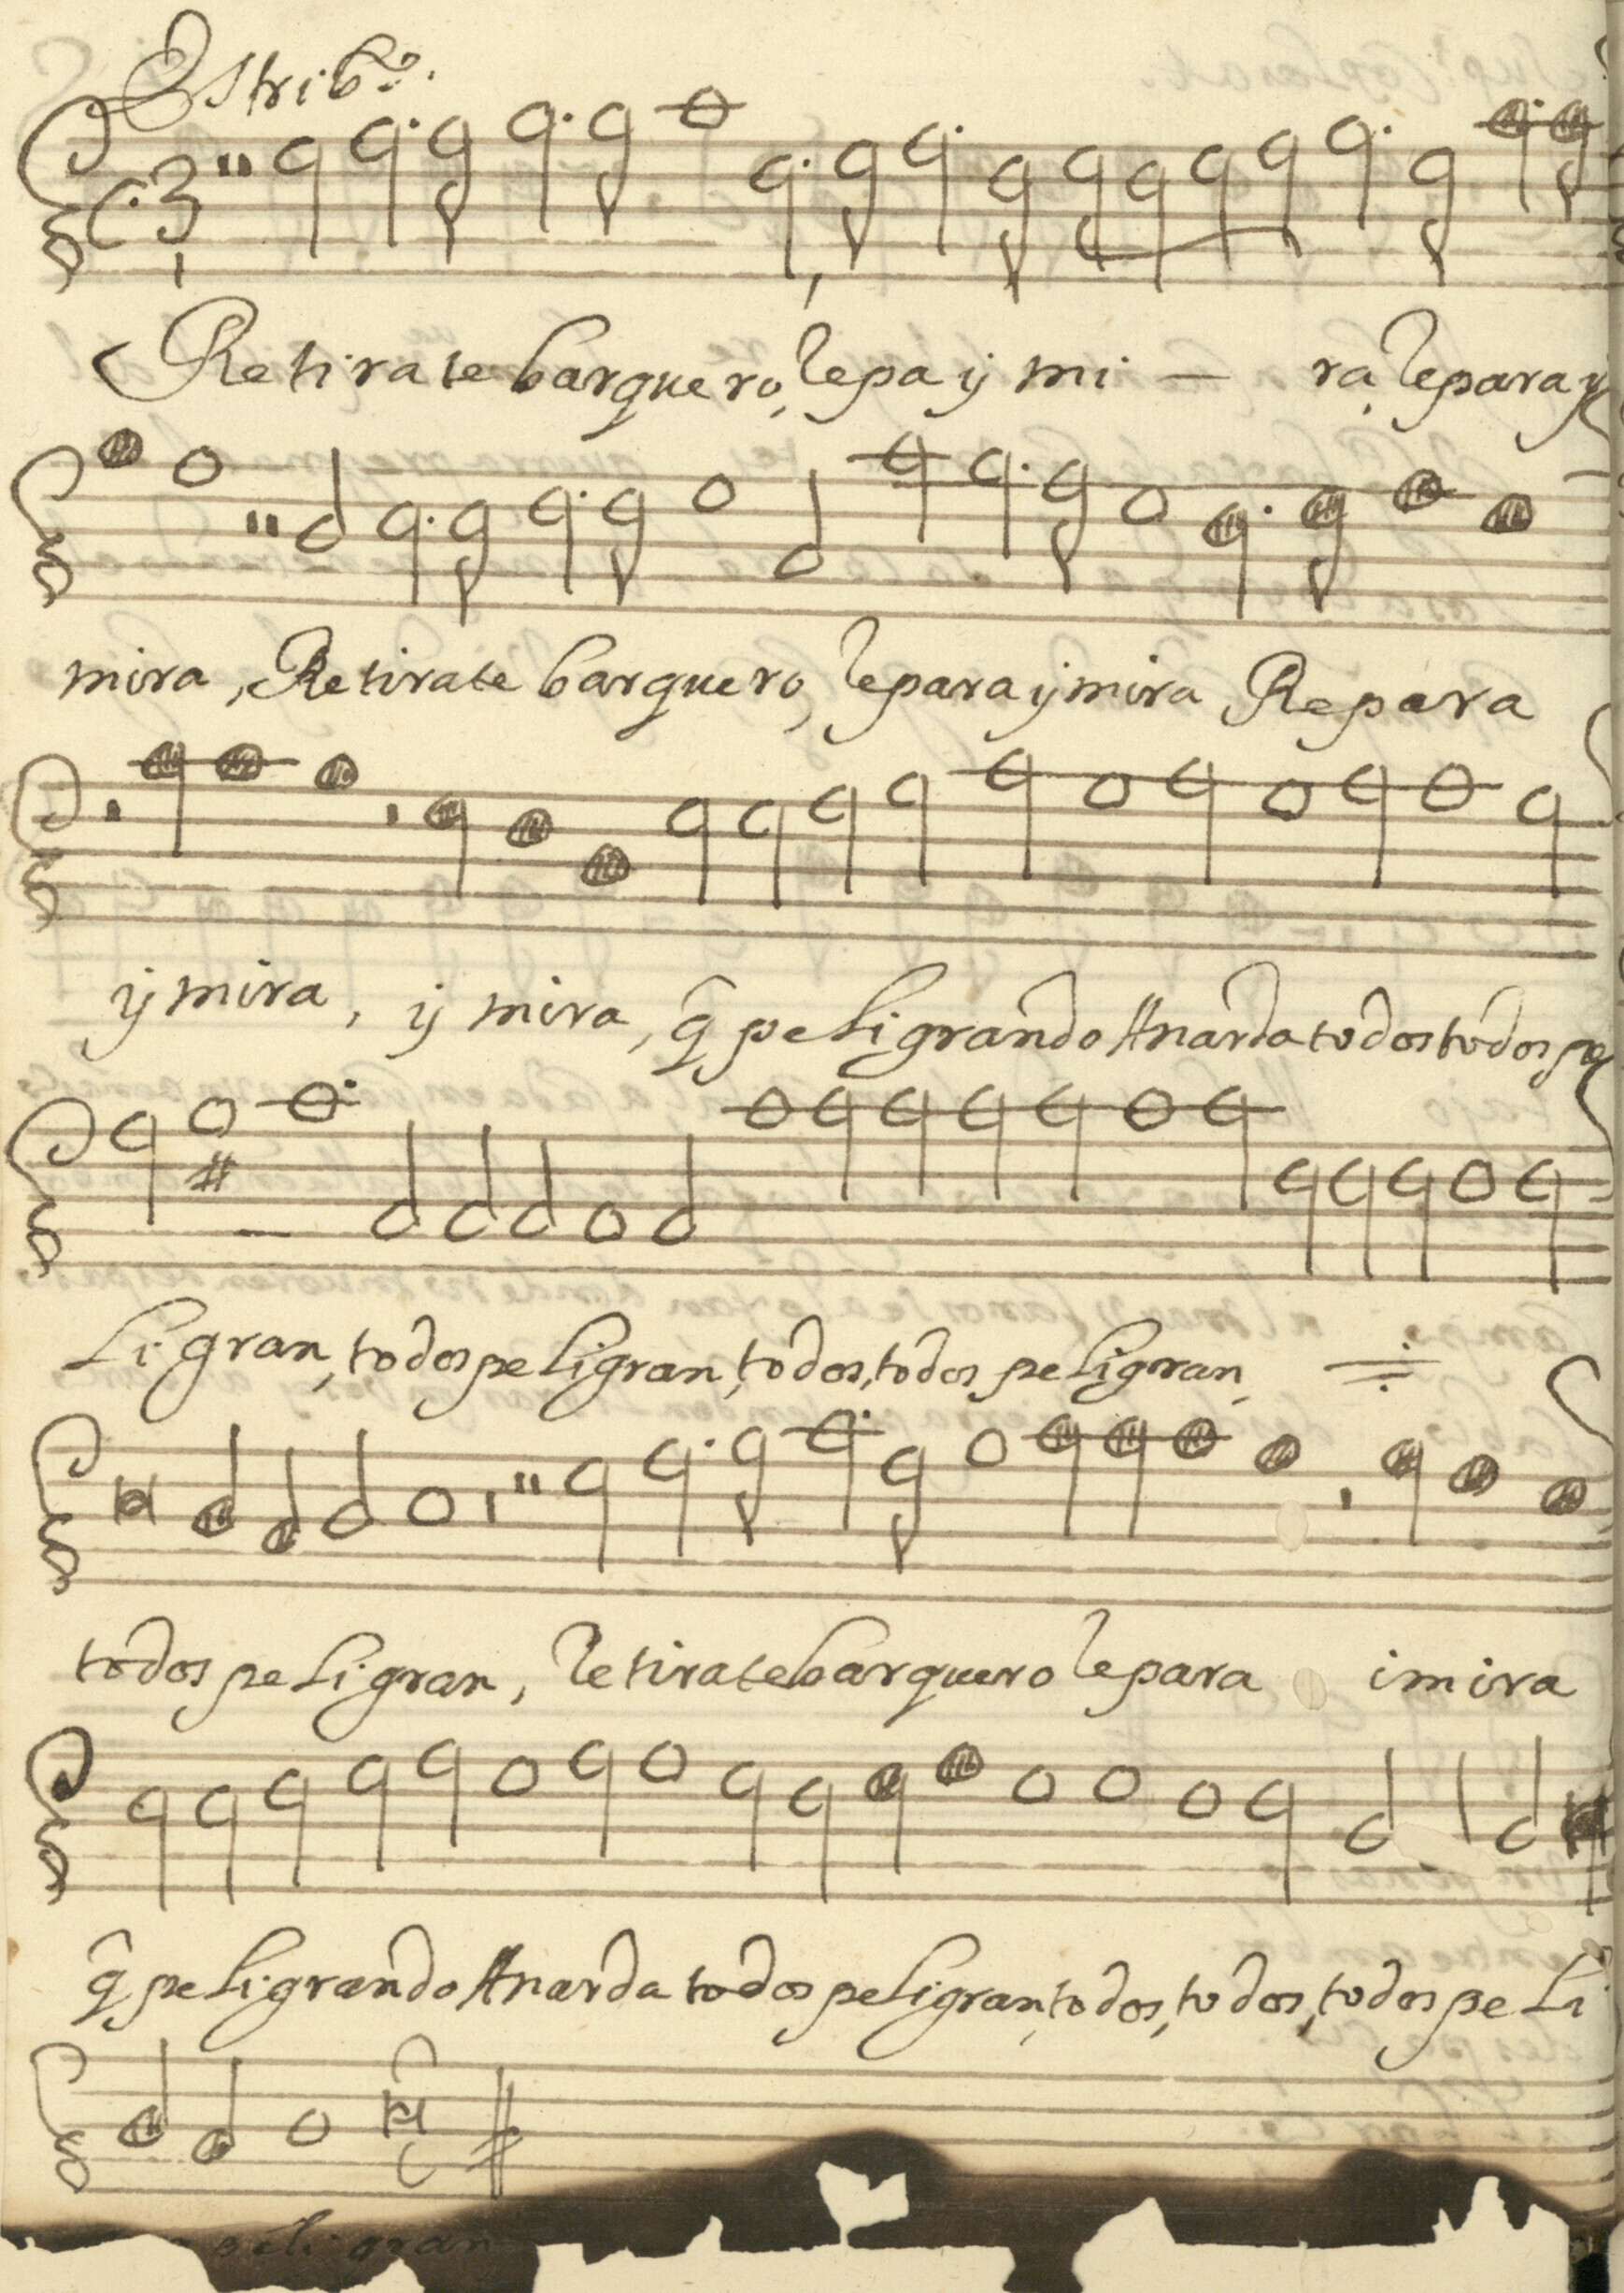 Estribº.
Retirate barquero, repa y mi - ra, repara y
mira, Retirate barquero, repara y mira Repara
y mira, y mira, q̂ peligrando Anarda todos todos pe
ligran, todos peligran, todos, todos peligran,
todos peligran, retirate barquero repara i mira
q̂ peligrando Anarda todos peligran, todos, todos, todos peli
peligran